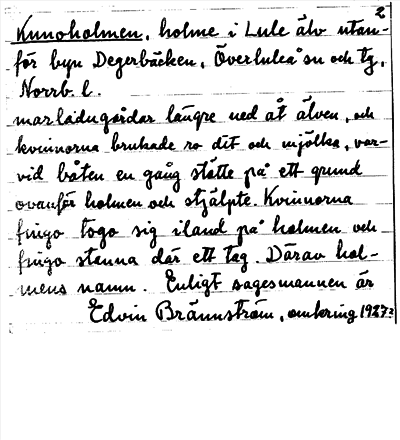 2
Kunoholmen, holme i Lule älv utan-
för byn Degerbäcken, Överluleå sn och tg,
Norrb. l.
marladugårdar längre ned åt älven, och
kvinnorna brukade ro dit och mjölka, var-
vid båten en gång stötte på ett grund
ovanför holmen och stjälpte. Kvinnorna
fingo togo sig iland på holmen och
fingo stanna där ett tag. Därav hol-
mens namn. Enligt sagesmannen är
Edvin Brännström, omkring 1927?